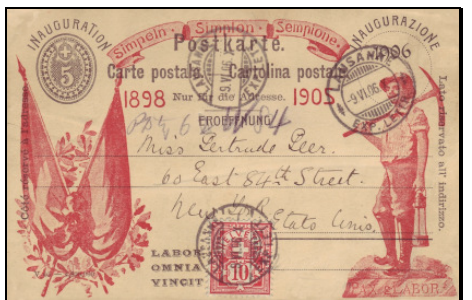 INAUGURATION
Simpeln - Simplon - Sempione.
INAUGURAZIONE
5
Postkarte.
1906
Carte postale. Cartolina postale
1898 Nur für die Adresse. 1905
LAUSANNE
-9.VI.06
EXP. LETT.
ERÖFFNUNG
Côté réservé à l'adresse.
Lato riservato all' indirizzo.
Miss Gertrude Peer.
60 East 84th Street.
New York Etats Unis.
LABOR
OMNIA
VINCIT
10
PAX & LABOR